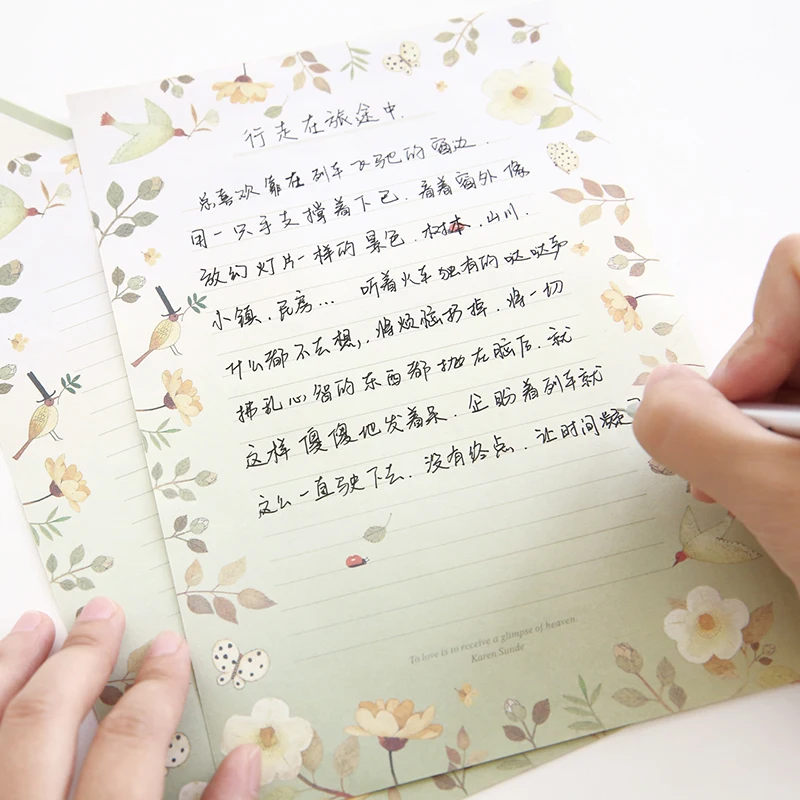 行走在旅途中.
总喜欢靠在列车飞驰的窗边.
用一只手支撑着下巴.看着窗外像
放幻灯片一样的景色.树木.山川.
小镇.民房... 听着火车独有的哒哒声
什么都不去想,将烦恼扔掉.将一切
拂乱心智的东西都抛在脑后.就
这样傻傻地发着呆.企盼着列车就
这么一直驶下去.没有终点.让时间凝
To love is to receive a glimpse of heaven.
Karen Sunde